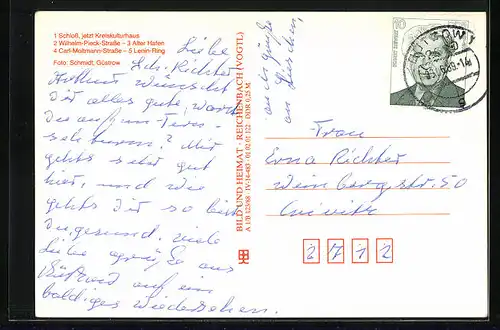 1 Schloß, jetzt Kreiskulturhaus
2 Wilhelm-Pieck-Straße – 3 Alter Hafen
4 Carl-Moltmann-Straße – 5 Lenin-Ring
Foto: Schmidt, Güstrow
Liebe
Fch. Richter
wünscht
Dir alles gute, warst
Du auf zum Turn-
Mir
gehts sehr gut
hier, und wie
gehts Dir so bist
Du gesund. viele
Liebe grüße aus
auf ein
baldiges Wiedersehen.
auch grüße
an
BILD UND HEIMAT · REICHENBACH (VOGTL)
A 1/B 125/88 IV-14-483 01 02 01 122 DDR 0,25 M
10
Frau
Erna Richter
Weinbergstr. 50
Crivitz
2 7 1 2